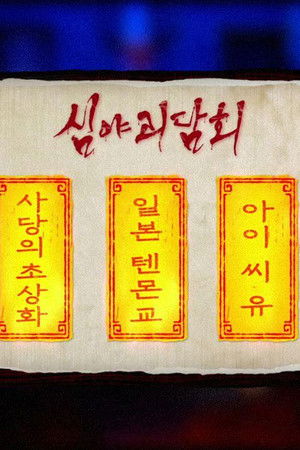 심야괴담회
사당의 초상화
일본 텐몬교
아이씨유